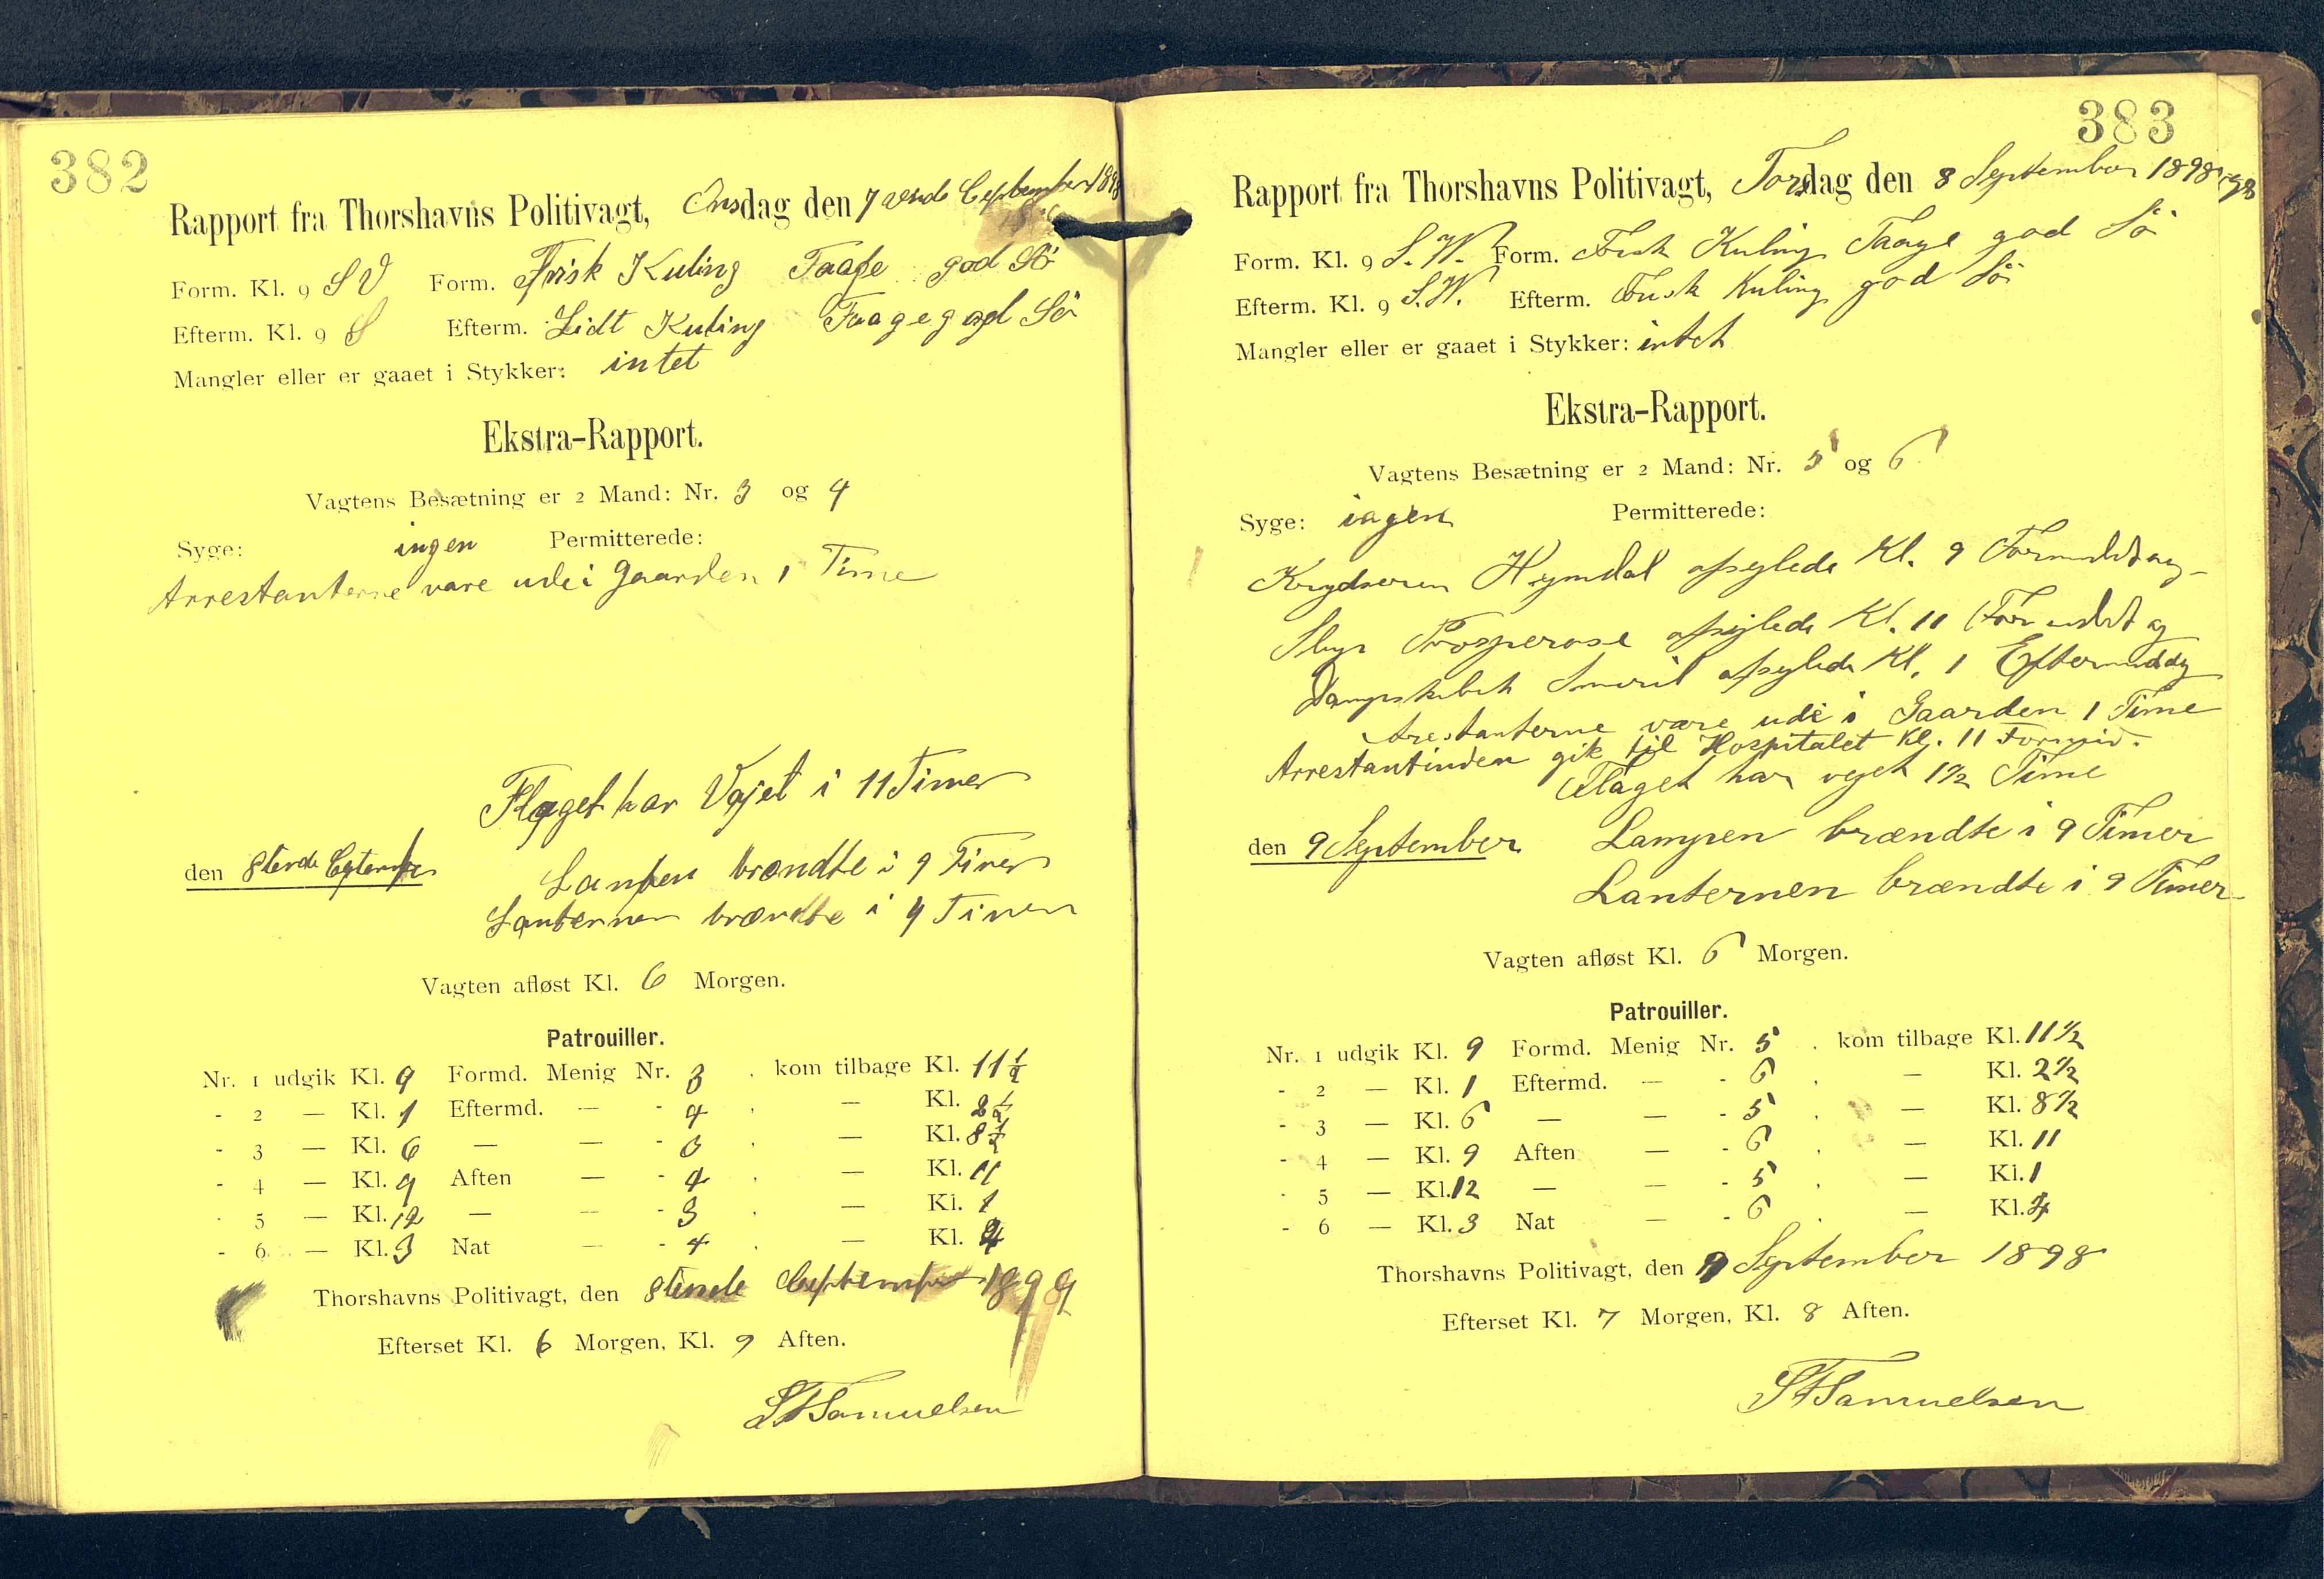 382
Rapport fra Thorshavns Politivagt, Onsdag den 7 September 1898
Form. Kl. 9 S V Form. Frisk Kuling Taage god Sö
Efterm. Kl. 9 S Efterm. Lidt Kuling Taage god Sö
Mangler eller er gaaet i Stykker: intet
Ekstra-Rapport.
Vagtens Besætning er 2 Mand: Nr. 3 og 4
Syge: ingen Permitterede:
Arrestanterne vare ude i Gaarden 1 Time
Flaget har Vajet i 11 Timer
den 8tende
Lampen brændte i 9 Timer
Lanternen brændte i 9 Timer
Vagten afløst Kl. 6 Morgen.
Patrouiller.
Nr. 1 udgik Kl. 9 Formd. Menig Nr. 3 . kom tilbage Kl. 11 1/2
- 2 — Kl. 1 Eftermd. — - 4 . — Kl. 2 1/2
- 3 — Kl. 6 — — - 3 . — Kl. 8 1/2
- 4 — Kl. 9 Aften — - 4 . — Kl. 11
- 5 — Kl. 12 — — - 3 . — Kl. 1
- 6 — Kl. 3 Nat — - 4 . — Kl. 4
Thorshavns Politivagt, den 8tende September 1898
Efterset Kl. 6 Morgen, Kl. 9 Aften.
SFSamuelsen
383
Rapport fra Thorshavns Politivagt, Torsdag den 8 September 1898
Form. Kl. 9 S. W. Form. Frisk Kuling Taage god Sö
Efterm. Kl. 9 S. W. Efterm. Frisk Kuling god Sö
Mangler eller er gaaet i Stykker: intet
Ekstra-Rapport.
Vagtens Besætning er 2 Mand: Nr. 5 og 6
Syge: ingen Permitterede:
Krydseren Hejmdal afsejlede Kl. 9 Formiddag
Slup Prosperose afsejlede Kl. 11 Formiddag
Dampskibet Smiril afsejlede Kl. 1 Eftermiddag
Arestanterne vare ude i Gaarden 1 Time
Arrestantinden gik til Hospitalet Kl. 11 Formid.
Flaget har vejet 1 1/2 Time
den 9 September Lampen brændte i 9 Timer
Lanternen brændte i 9 Timer
Vagten afløst Kl. 6 Morgen.
Patrouiller.
Nr. 1 udgik Kl. 9 Formd. Menig Nr. 5 . kom tilbage Kl. 11 1/2
- 2 — Kl. 1 Eftermd. — - 6 . — Kl. 2 1/2
- 3 — Kl. 6 — — - 5 . — Kl. 8 1/2
- 4 — Kl. 9 Aften — - 6 . — Kl. 11
- 5 — Kl. 12 — — - 5 . — Kl. 1
- 6 — Kl. 3 Nat — - 6 . — Kl. 4
Thorshavns Politivagt, den 9 September 1898
Efterset Kl. 7 Morgen, Kl. 8 Aften.
SFSamuelsen